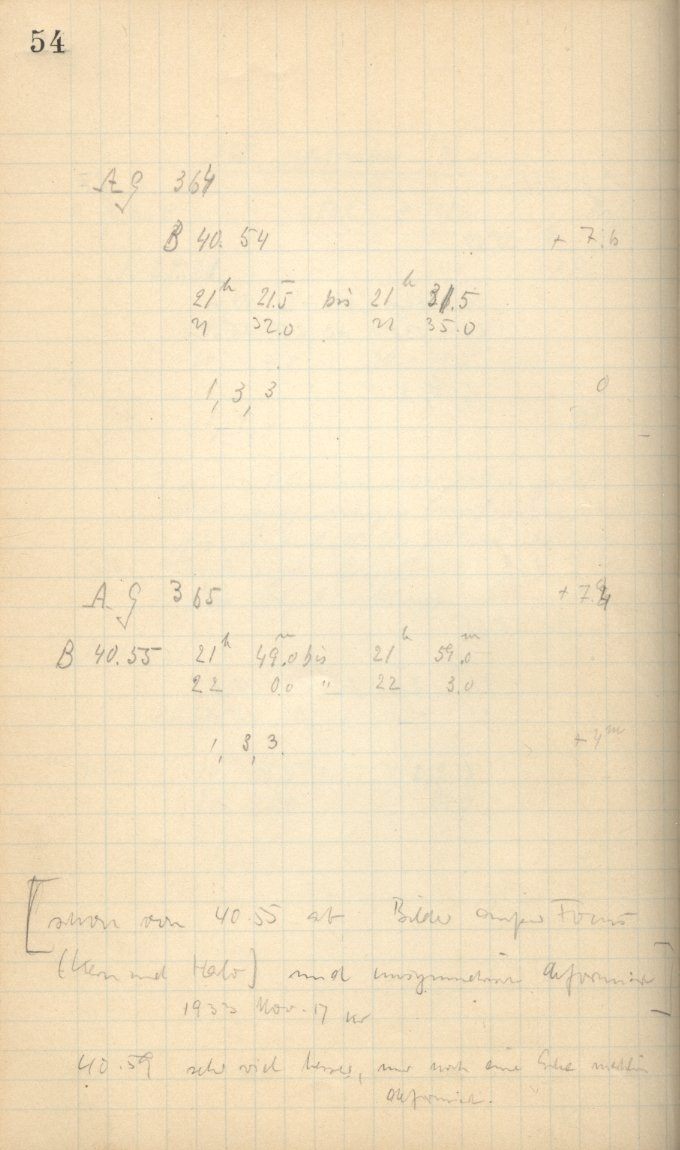 54
AG 364
B 40.54 + 7.6
21h 21.5 bis 21h 31.5
21 32.0 21 35.0
1, 3, 3 0
AG 365 + 7.4
B 40.55 21h 49.0m bis 21h 59.0m
22 0.0 " 22 3.0
1, 3, 3. + 4m
[schon von 40.55 ab Bilder außer Focus
(Kern und Halo) und unsymmetrisch deformiert]
1933 Nov. 17
40.59 sehr viel besser, nur noch eine Ecke
deformiert.